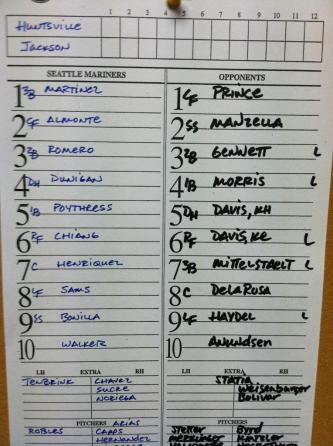 1 2 3 4 5 6 7 8 9 10 11 12
HUNTSVILLE
JACKSON
SEATTLE MARINERS
1 3B MARTINEZ
2 CF ALMONTE
3 2B ROMERO
4 DH DUNIGAN
5 1B POYTHRESS
6 RF CHIANG
7 C HENRIQUEZ
8 LF SAMS
9 SS BONILLA
10 WALKER
LH EXTRA RH
TENBRINK CHAVEZ
SUCRE
NORIEGA
PITCHERS ARIAS
ROBLES CAPPS
HERNANDEZ
OPPONENTS
1 CF PRINCE
2 SS MANZELLA
3 2B GENNETT L
4 1B MORRIS L
5 DH DAVIS, KH
6 RF DAVIS, KE L
7 3B MITTELSTAEDT L
8 C DELAROSA
9 LF HAYDEL L
10 Amundsen
LH EXTRA RH
STATIA
Weisenburger
Bolivar
PITCHERS
Byrd